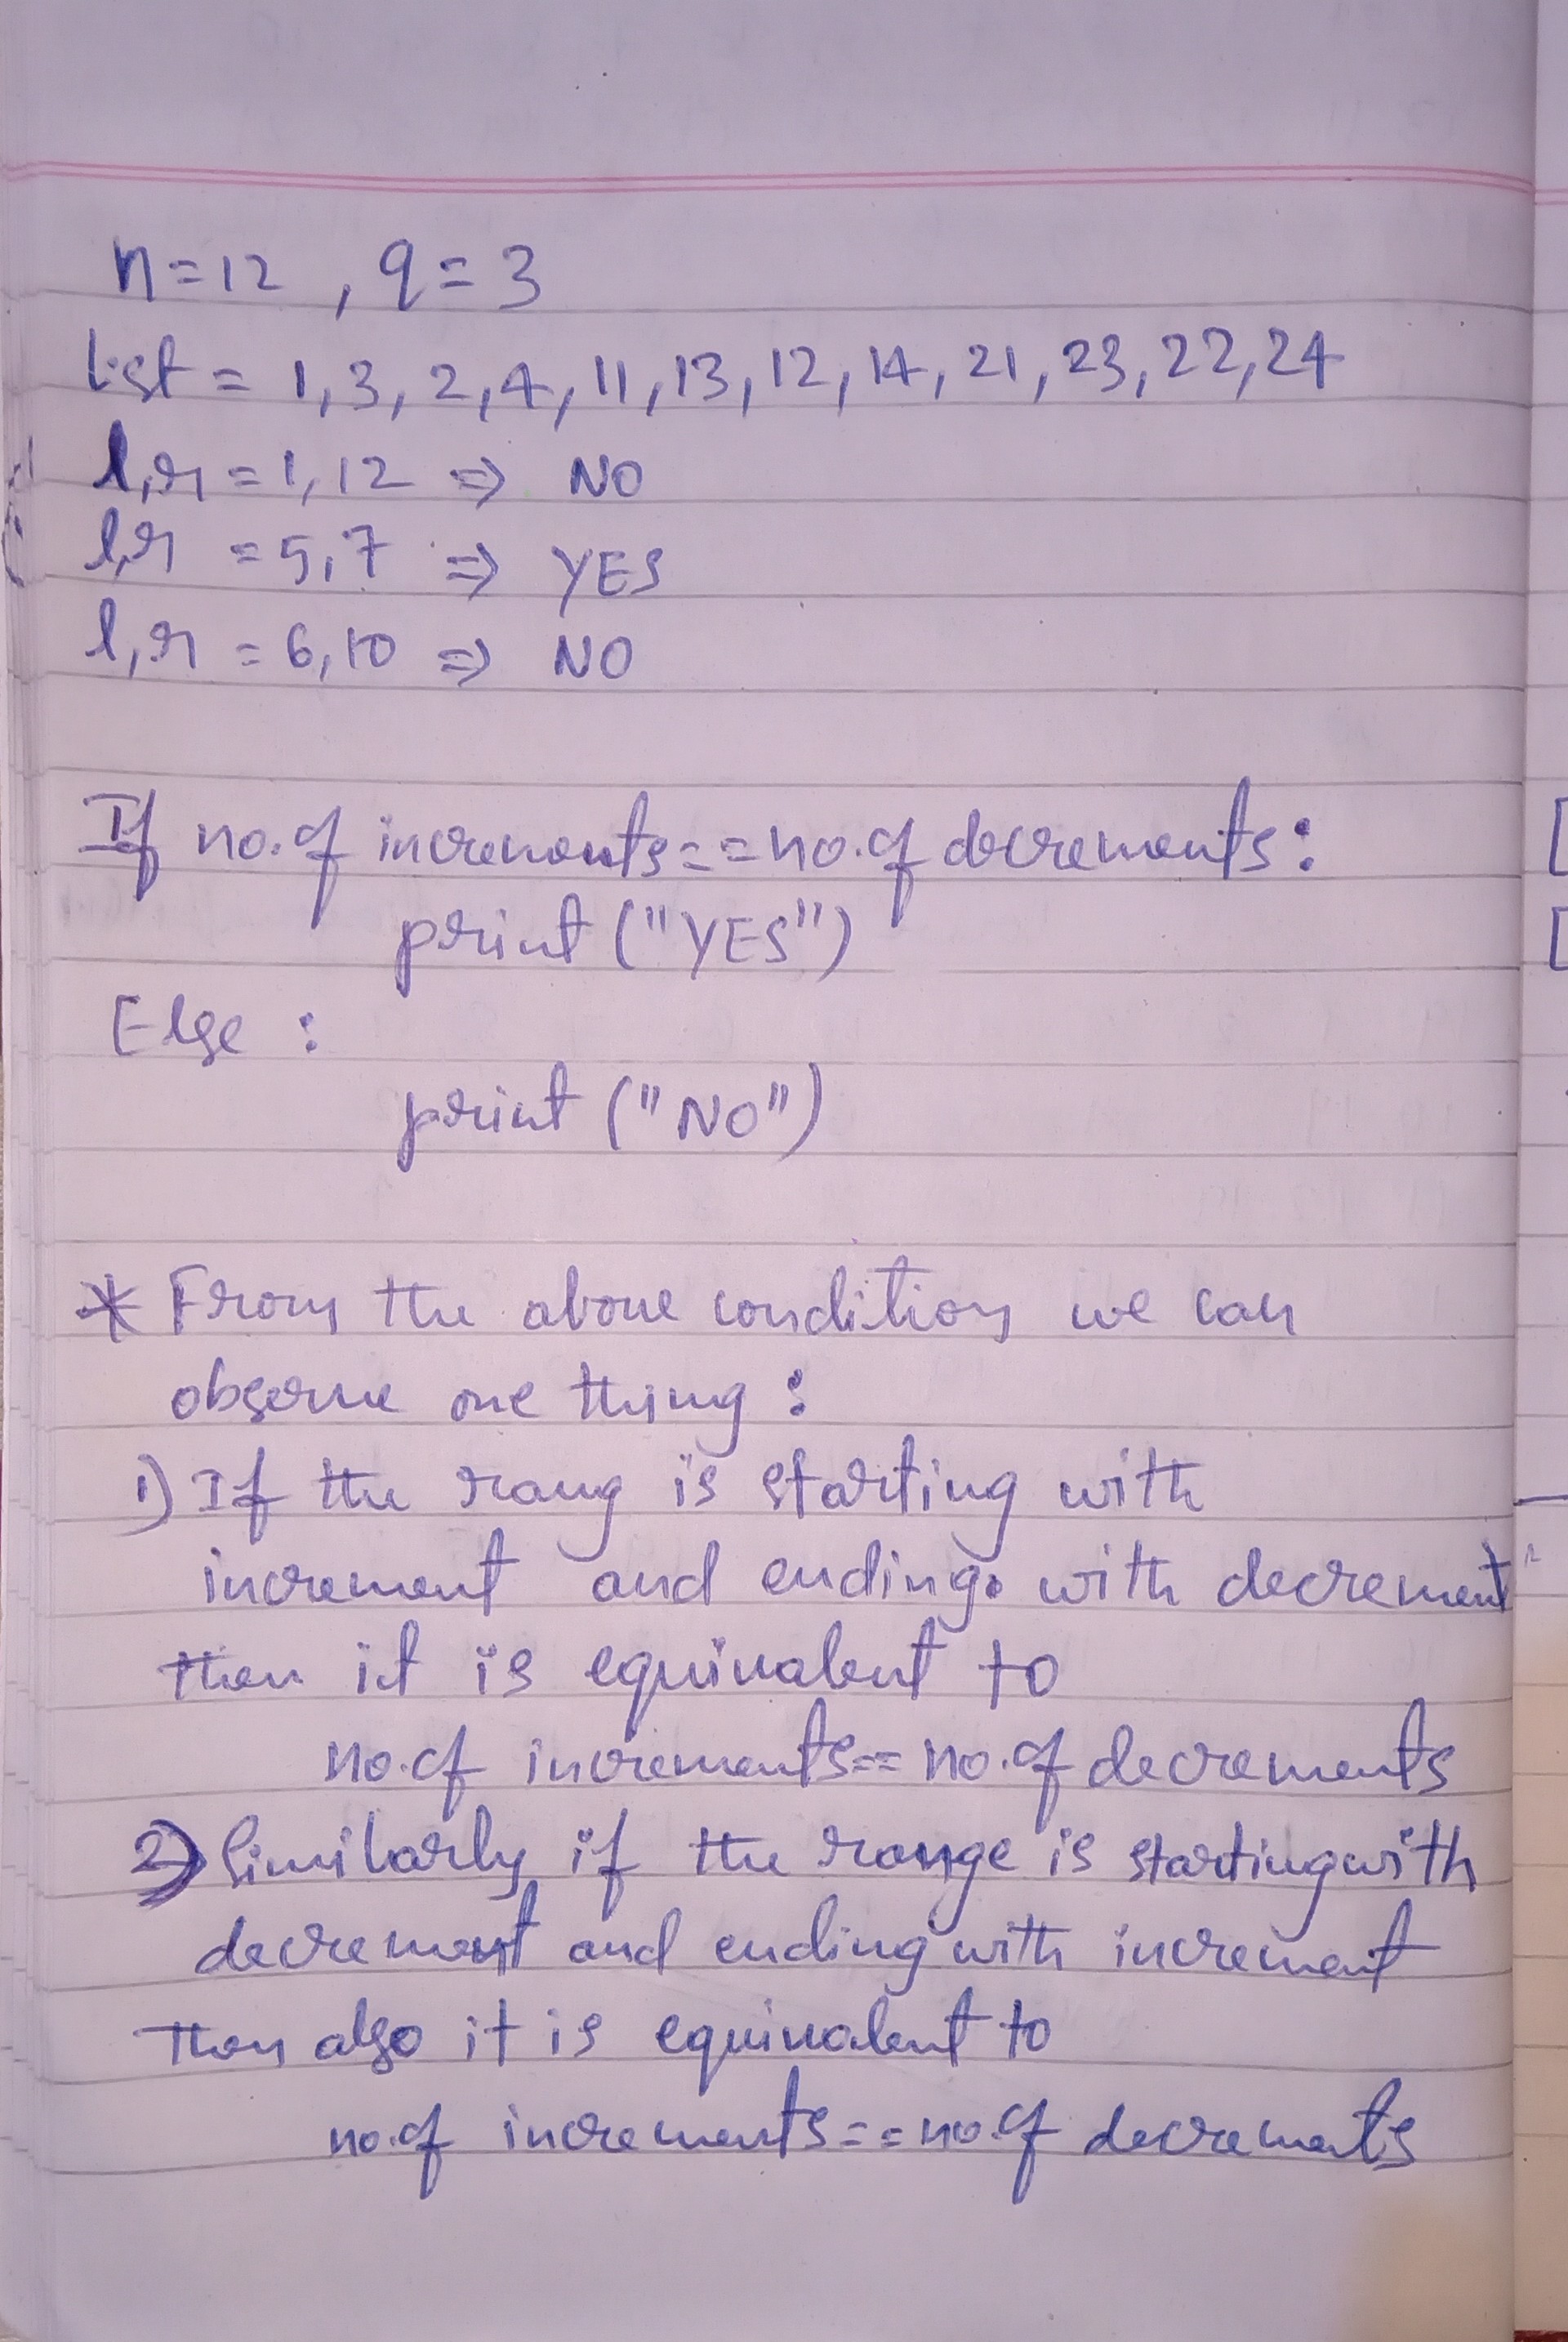 n=12 , q=3
list = 1,3,2,4,11,13,12,14,21,23,22,24
l,r = 1,12 => NO
l,r = 5,7 => YES
l,r = 6,10 => NO
If no.of increments==no.of decrements:
print ("YES")
Else :
print ("NO")
* From the above condition we can
observe one thing :
1) If the rang is starting with
increment and ending with decrement
then it is equivalent to
no.of increments== no.of decrements
2) Similarly if the range is starting with
decrement and ending with increment
then also it is equivalent to
no.of increments==no.of decrements